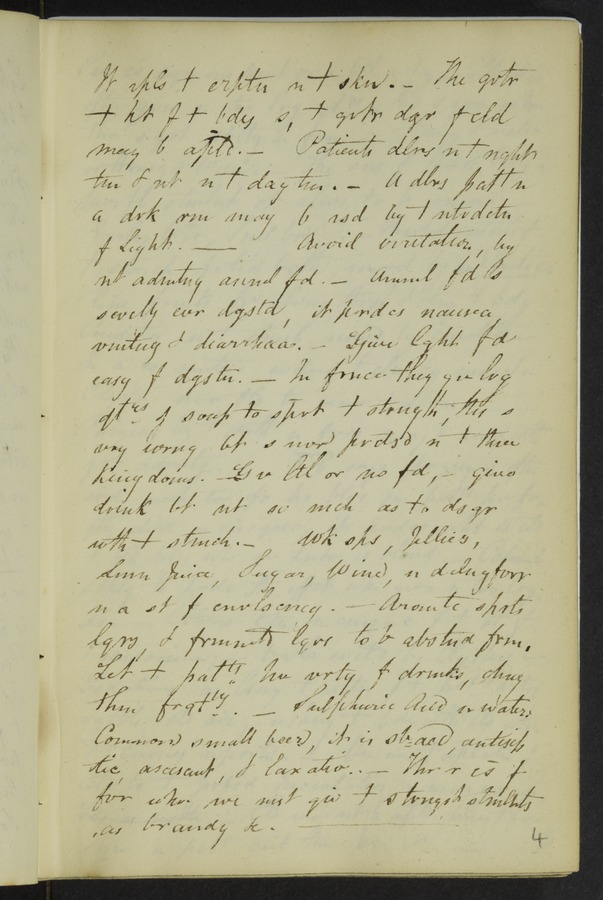 It apls t erptn n t skn. — The gvtr
t ht f t bdy s, t gvtr dgr f cld
may b aplid. — Patients dlrs n t night
tm & nt n t day tm. — A dlrs patt n
a drk rm may b rsd by t ntrdctn
f Light. — Avoid irritation, by
nt admtng animl fd. — Animl fd is
sevelly evr dgstd, it prdcs nausea,
vmitng & diarrhaea. — Give lght fd
easy f dgstn. — In france they gv lrg
qt^ies of soup to sprt t strngth, this s
very wrong bt s now prdsd n t three
kingdoms. — Gv ltl or no fd, — give
drink bt nt so mch as to dsgr
wth t stmch. — Wk sps, Jellies,
Lmn Juice, Sugar, Wine, n
n a st f cnvlscncy. — Aromtc sprts
lqrs, & frmntd lqrs to b abstnd frm.
Let t patt^s hv vrty f drinks, chng
thm frqt^ly. — Sulphuric Acid n water,
Common small beer, it is acd, antisep
tic, ascescent, & laxative. — Thr r cs f
fvr whn we mst giv t strngst stmlnts
as brandy &c.
4